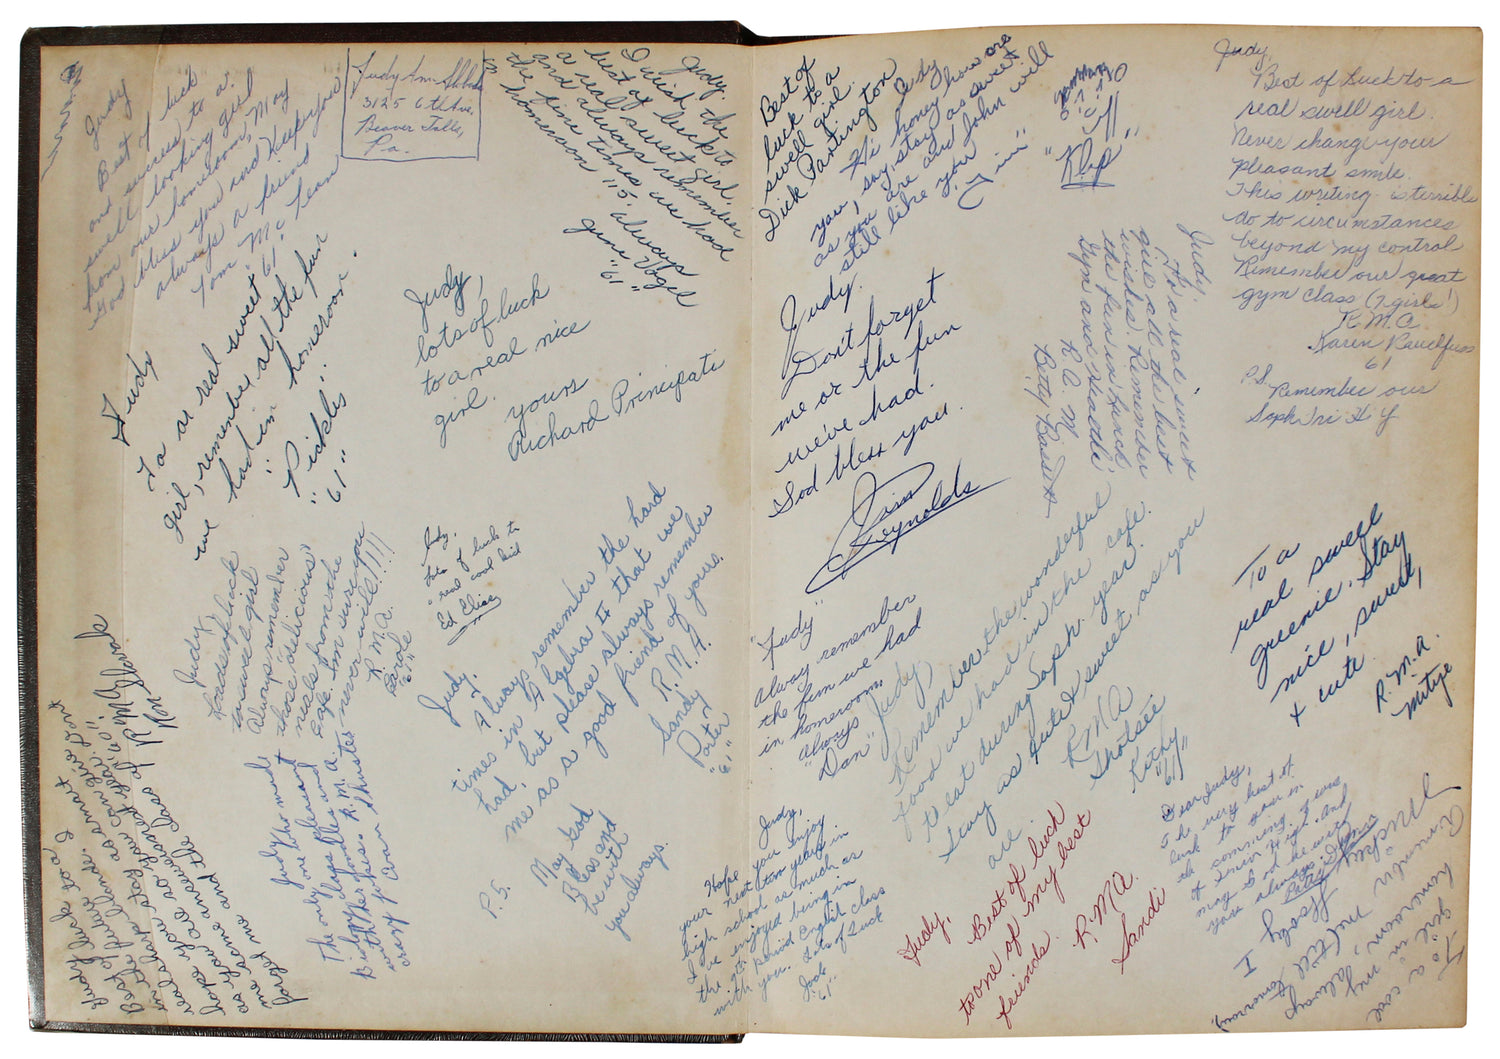 Judy
Best of luck
and success to a
swell looking girl
from our homeroom. May
God bless you and keep you
always a friend
Tom Mc Lean
61
Judy Ann
3125 6th Ave.
Beaver Falls,
Pa.
Judy.
I wish the
best of luck to
a real sweet girl,
and always remember
the fine times we had
in homeroom "5". always
June Vogel
"61"
Judy
To a real sweet
girl, remember all the fun
we had in homeroom.
"Pickles"
"61"
Judy,
lots of luck
to a real nice
girl.
yours
Richard Principati
Judy,
Loads of luck
to a swell girl
Always remember
those delicious
meals from the
cafe. I'm sure you
never will!!!!
R.M.A.
Carole
"61"
Judy,
Lots of luck to
a real cool kid
Ed
Judy,
Always remember the hard
times in Algebra II that we
had, but please always remember
me as a good friend of yours.
R.M.A.
Sandy
Porter
"61"
P.S. May God
Bless and
be with
you always.
Judy, Luck to a
Best of
in the future. I
real sharp, stay as sweet
hope you are as you can give
as you are as
me some answers
forget me and the class of
R.M.A.
Ken
Judy who made
the only one pleasant
Biology class
with her foolishness R.M.A.
crazy
Best of
luck to a
swell girl.
Dick Partington
Judy
Hi honey, how are
you, say, stay as sweet
as you are and John will
still like you
"Jim"
"Klip"
Judy,
Best of Luck to a
real swell girl.
Never change your
pleasant smile.
This writing is terrible
do to circumstances
beyond my control
Remember our great
gym class (7 girls!)
R.M.A.
Karen
61
P.S.
Remember our
Soph Tri Hi Y
Judy.
To a real sweet
girl all the best
wishes. Remember
the fun in lunch,
Gym and Health
R.A.M.
Betty
Judy.
Don't forget
me or the fun
we've had.
God bless you.
Jim
Reynolds
"Judy"
always remember
the fun we had
in homeroom.
"always
Dan"
Judy,
Remember the wonderful
food we had in the cafe.
to eat during Soph. year.
Stay as cute & sweet, as you
are
R.M.A
Shotsie
Kathy
"61"
To a
real swell
greenie. Stay
nice, sweet,
+ cute
R.M.A.
Mitzie
Judy,
Hope you enjoy
your next two years in
high school as much as
I've enjoyed being in
the 7th period English class
with you. Lots of Luck
Jack
"61"
Judy,
Best of luck
to one of my best
friends.
R.M.A.
Sandi
Dear Judy,
The very best of
luck to you in
the coming
of Senior High. And
may God be with
you always.
Patty
To a cool
girl in my
homeroom, always
remember me
Mickey